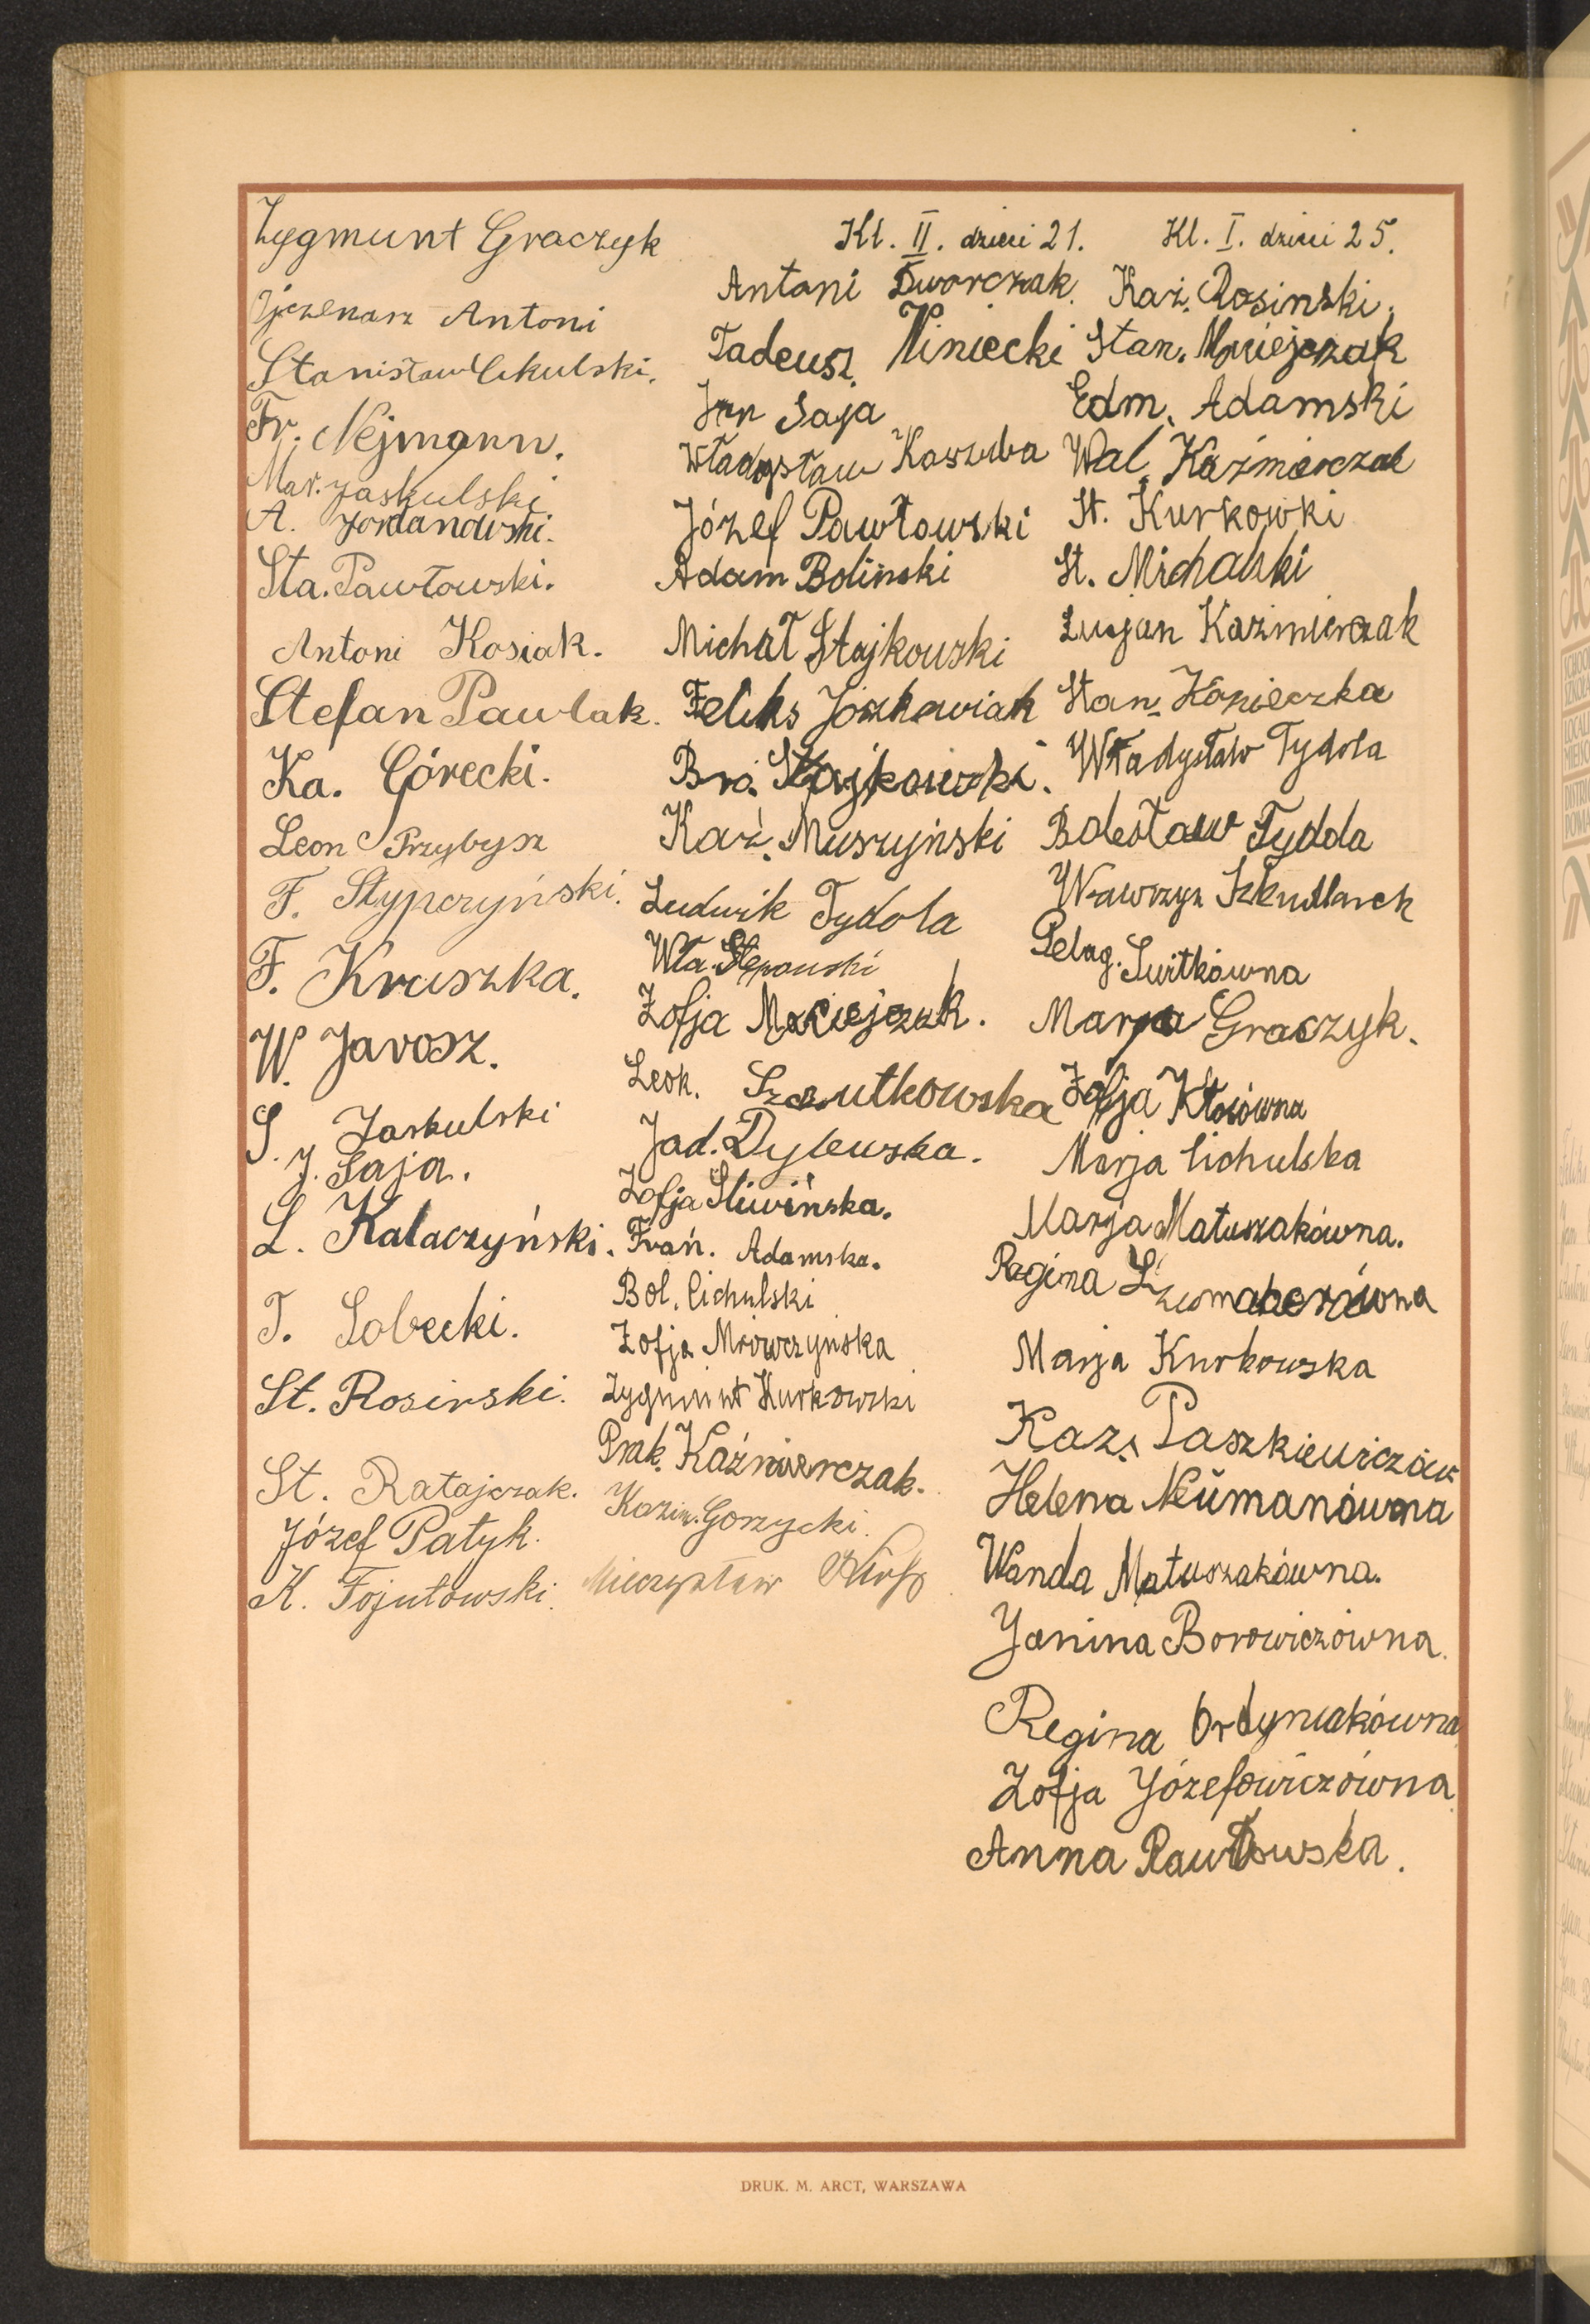 Zygmunt Graczyk
Antoni
Stanisław Cekulski.
Fr. Nejmann.
Mar. Jaskulski
A. Jordanowski.
Sta. Pawłowski.
Antoni Kosiak.
Stefan Pawlak.
Ka. Górecki.
Leon Przybysz
F. Stypczyński.
F. Kruszka.
W. Jarosz.
S. Jaskulski
J. Saja.
L. Kalaczyński.
T. Sobecki.
St. Rosinski.
St. Ratajczak.
Józef Patyk.
K. Fojutowski.
Kl. II. dzieci 21.
Antoni Dworczak.
Tadeusz Winiecki
Jan Saja
Władysław Kaszuba
Józef Pawłowski
Adam Bolinski
Michał Stajkowski
Feliks Józkowiak
Bro. Stajkowski.
Kaź. Muszyński
Ludwik Tydola
Wła.
Zofja Maciejczak.
Leok. Szczutkowska
Jad. Dylewska.
Zofja Śliwińska.
Frań. Adamska.
Bol. Cichulski
Zofja Mrówczyńska
Zygmunt Kurkowski
Prak. Kaźmierczak.
Kazim. Gorzycki.
Mieczysław
Kl. I. dzieci 25.
Kaź. Rosinski.
Stan. Maciejczak
Edm. Adamski
Wal. Kaźmierczak
St. Kurkowki
St. Michalski
Lucjan Kaźmierczak
Stan. Konieczka
Władysław Tydola
Bolesław Tydola
Wawrzyn Szkudlarek
Pelag. Świtkówna
Marja Graczyk.
Zofja Kłosówna
Marja Cichulska
Marja Matuszakówna.
Regina
Marja Kurkowska
Kaz. Paszkiewiczów
Helena Neumanówna
Wanda Matuszakówna.
Janina Borowiczówna.
Regina Ordyniakówna
Zofja Józefowiczówna
Anna Pawłowska.
DRUK. M. ARCT, WARSZAWA